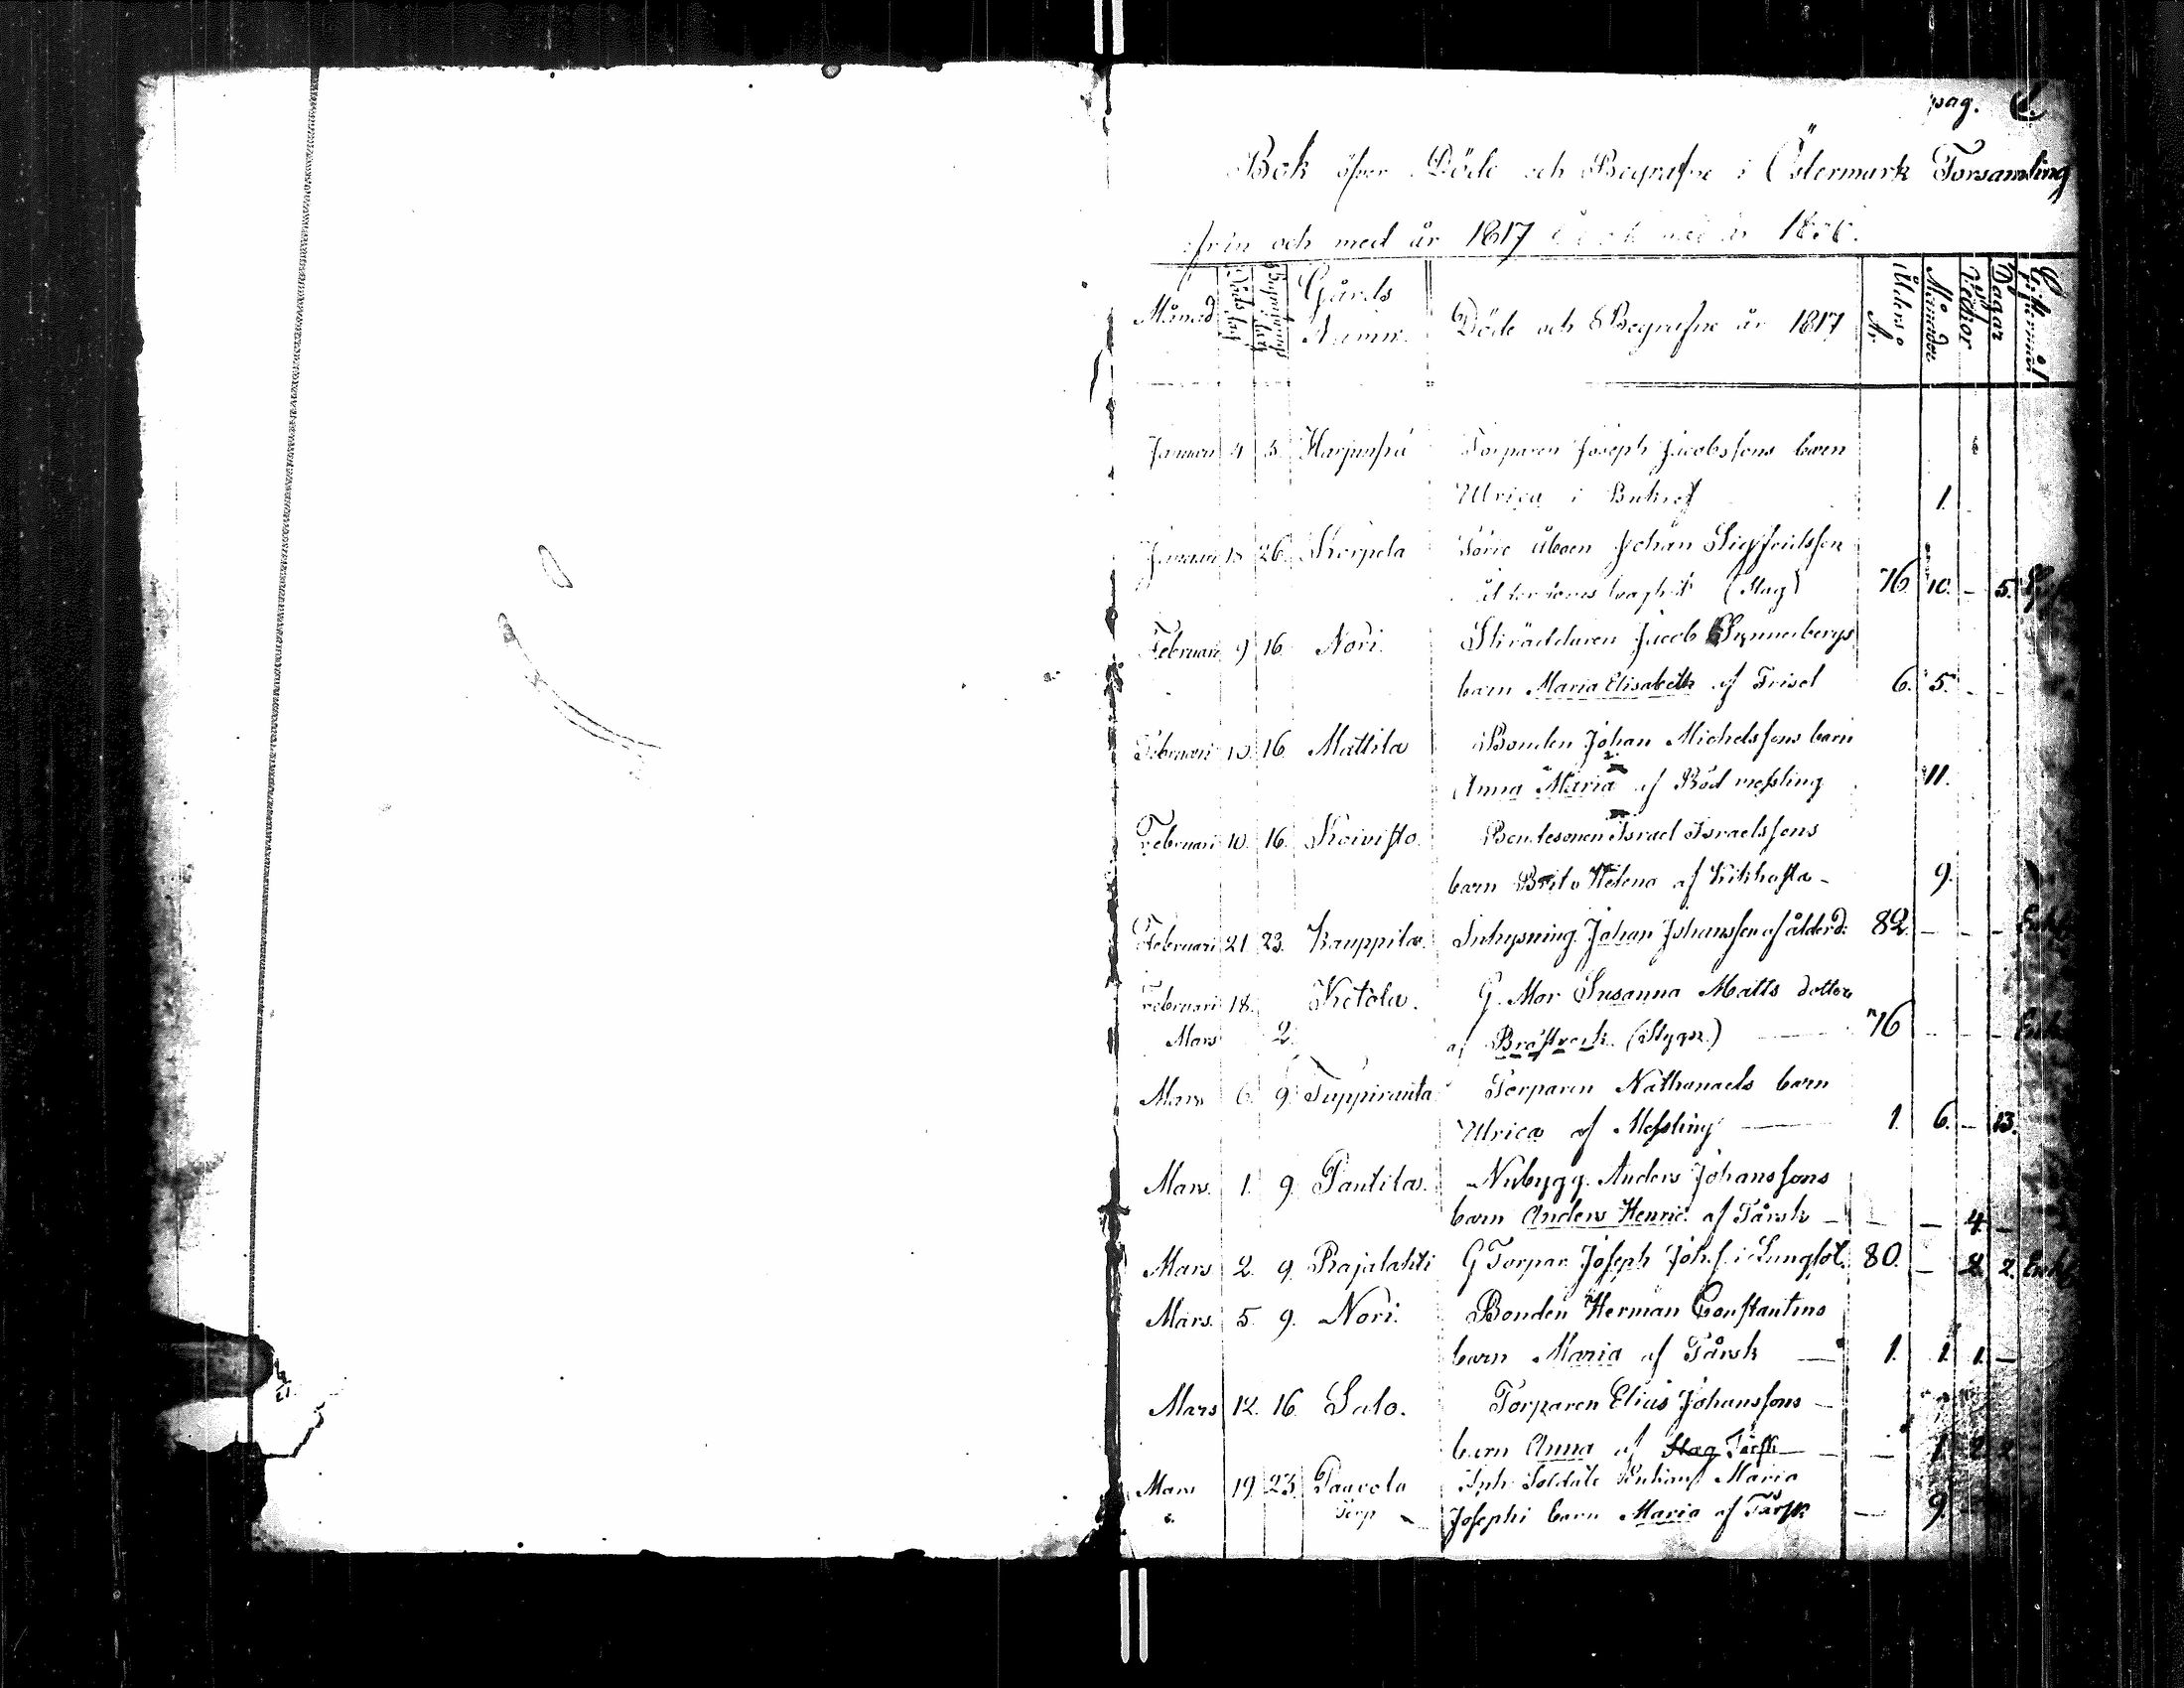 pag. 1.
Bok öfver Döde och Begrafne i Östermark Församling
ifrån och med år 1817 till och med år
Månad Döds dag Begrafnings dag Gårds Namn. Döde och Begrafne år 1817 Ålders År Månader Veckor Dagar Giftermål
Januari 4 5. Harjunpä Torparen Joseph Jacobssons barn
Ulrica i 1.
Januari 18 26. Korpela Förre åboen Johan Sigfridsson
(Slag) 76. 10. - 5.
Februari 9 16. Nori. Skräddaren Jacob
barn Maria Elisabeth af Trisel 6. 5. - -
Februari 10. 16. Mattila Bonden Johan Michelssons barn
Anna Maria af Röd messling 11.
Februari 10. 16. Koivisto. Bondesonen Israel Israelssons
barn Brita Helena af Kikhosta - 9.
Februari 21 23. Kauppila. Inhysning Johan Johansson af ålderd: 82. - - - Enkl
Februari 18. Ketola. G. Mor Susanna Matts dotter
Mars 2. af Bröstverk. (Stygn.) 76 - - - Enk
Mars 6. 9. Tuppiranta Torparen Nathanaels barn
Ulrica af Messling 1. 6. - 13.
Mars. 1. 9. Pantila. Nybygg. Anders Johanssons
barn Anders Henric af Tårsk - - - 4. -
Mars 2. 9. Rajalahti G Torpar. Joseph Joh.s. i Lungsot. 80. - 8. 2. Enkl
Mars. 5. 9. Nori. Bonden Herman Constantins
barn Maria af Tårsk 1. 1. 1. -
Mars 12. 16. Salo. Torparen Elias Johanssons -
barn Anna af Slag Tårsk - - 1. 2. 2.
Mars 19. 23. Paavola Inh. Soldate Maria
Torp Josephi barn Maria af Tårsk - 9.